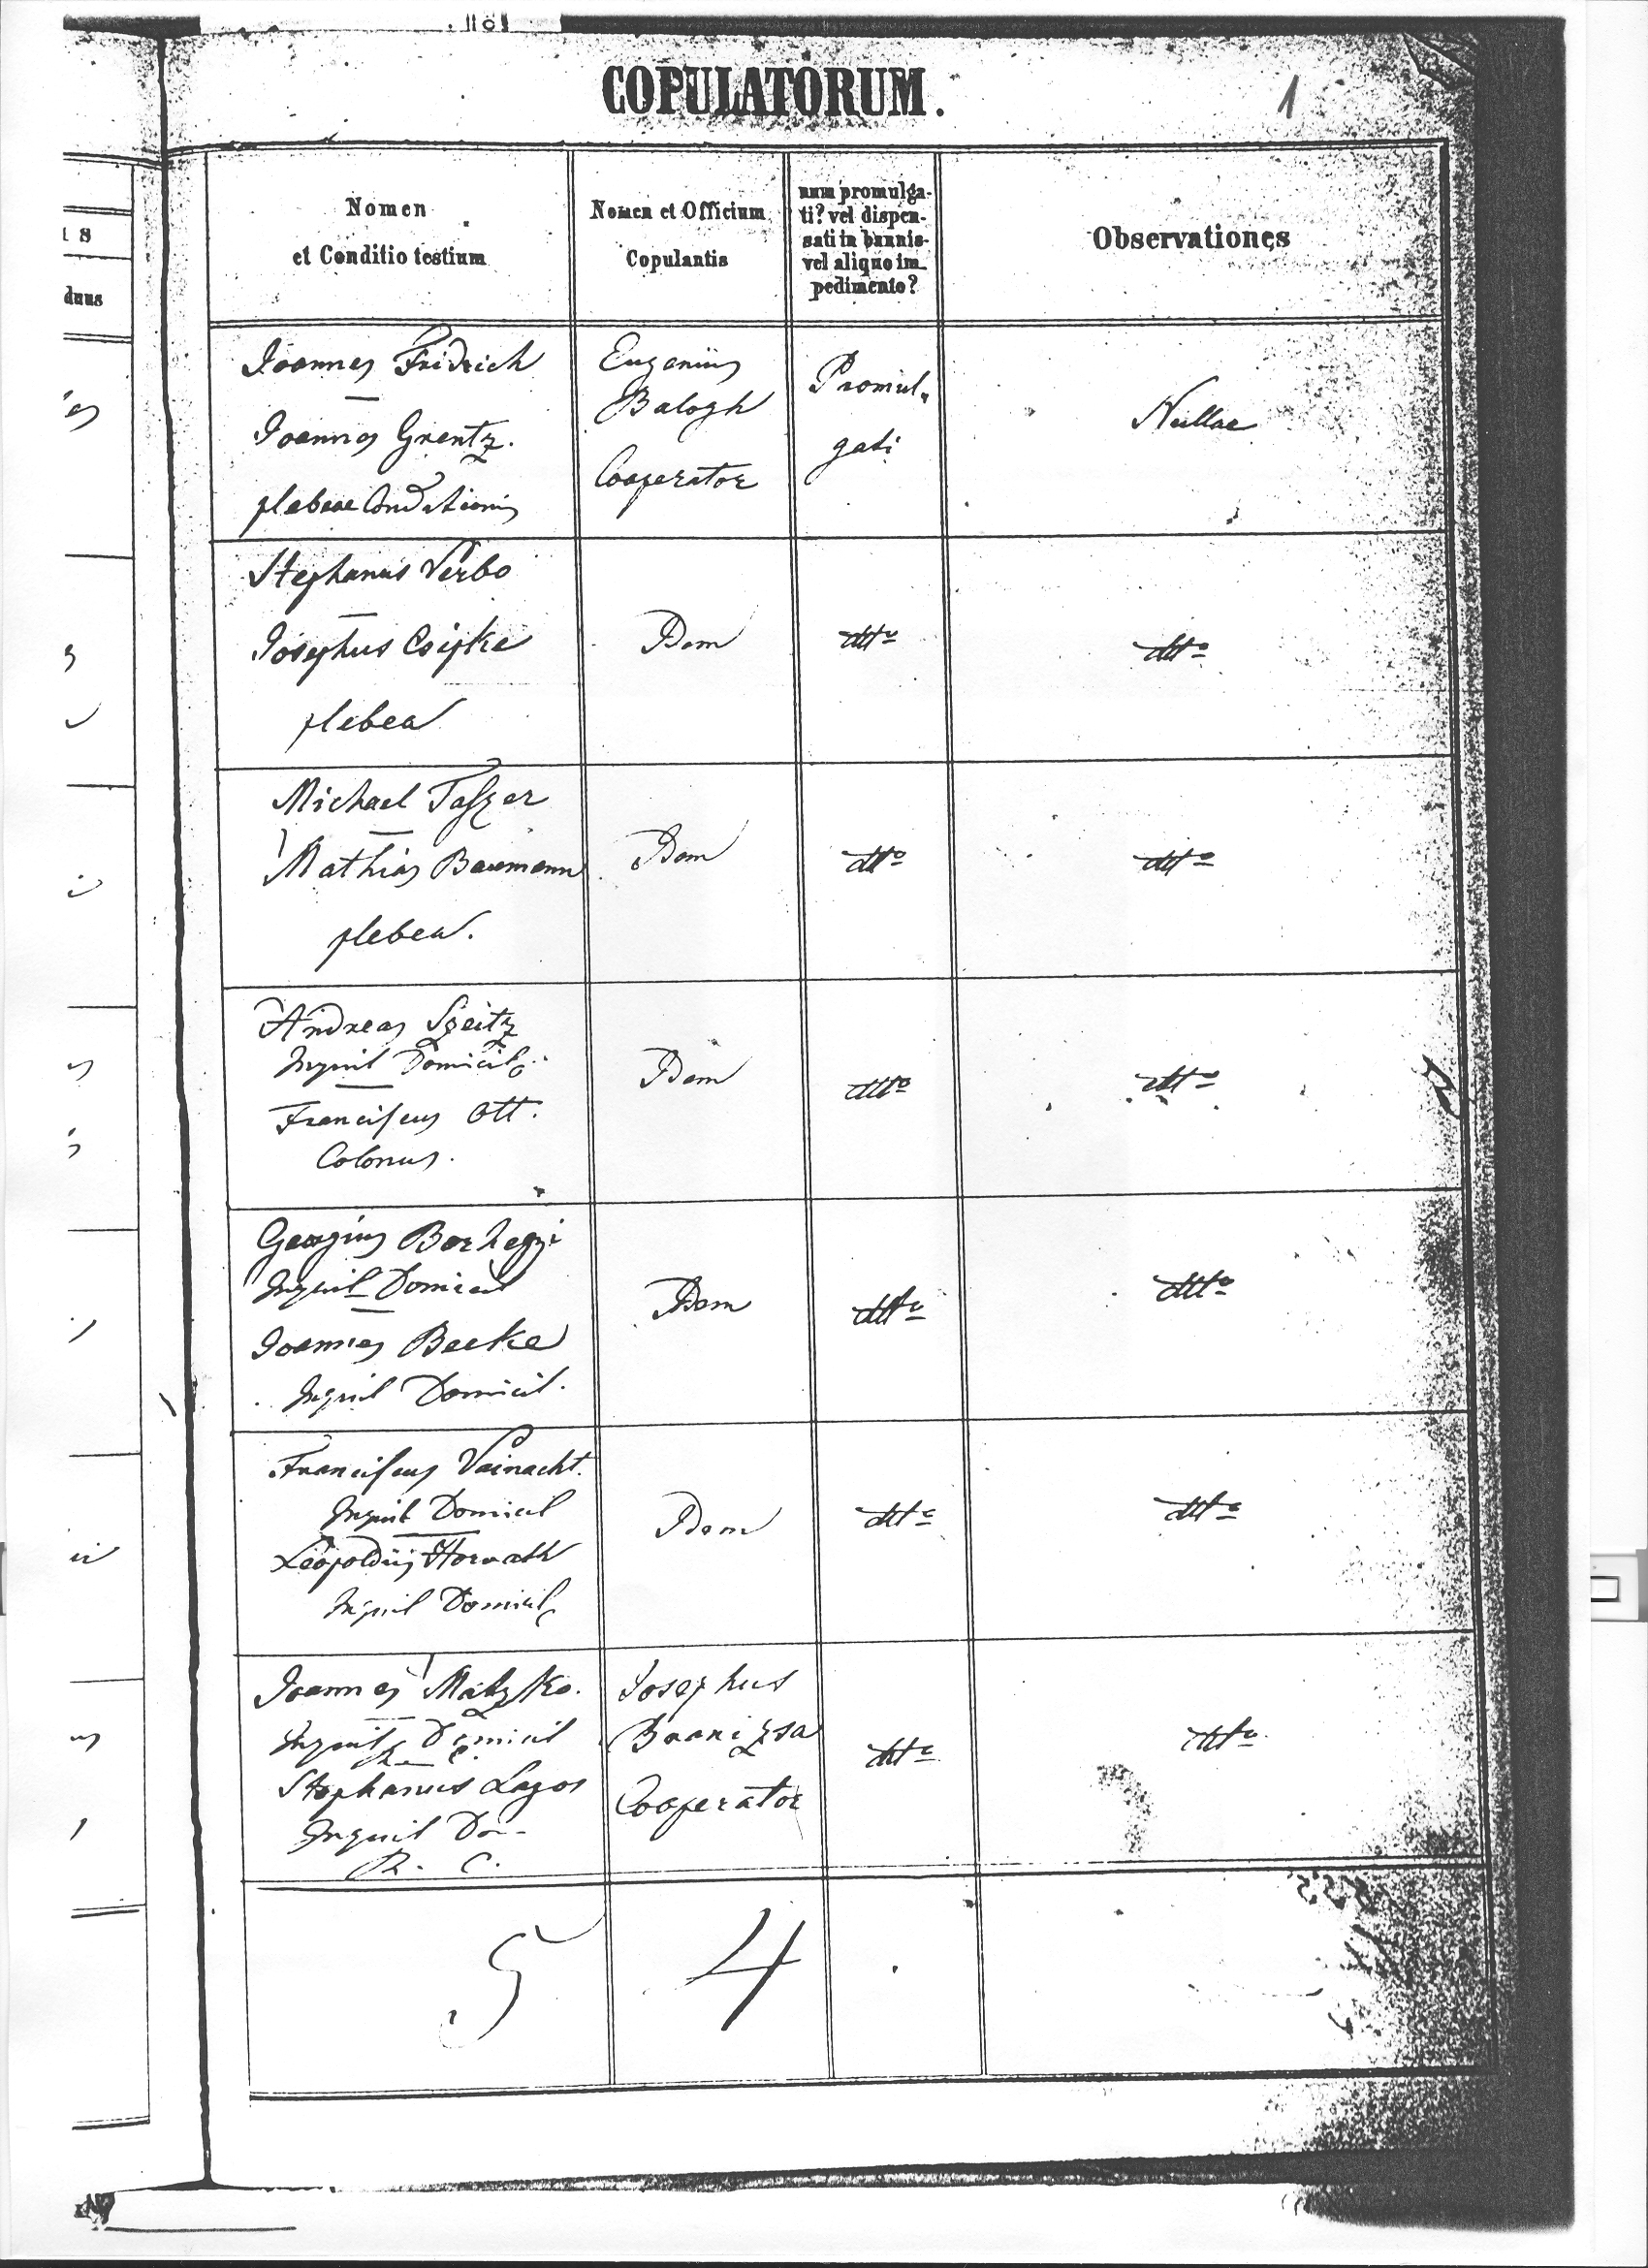 COPULATORUM.
1
Nomen
et Conditio testium
Nomen et Officium
Copulantis
num promulga-
ti? vel dispen-
sati in bannis
vel aliquo im-
pedimento?
Observationes
duus
Joannes Fridrich
Joannes Grentz.
plebeae Conditionis
Eugenius
Balogh
Cooperator
Promul„
gati
Nullae
Stephanus Verbo
Josephus Csipke
plebea
Idem
dtto
dtto
Michael Taszer
Mathias Baumann
plebea.
Idem
dtto
dtto
Andreas Szeitz
Inquil Domicil
Franciscus Ott.
Colonus.
Idem
dtto
dtto
Georgius Borhegyi
Inquil Domicil
Joannes Becke
Inquil Domicil.
Idem
dtto
dtto
Franciscus Vainacht.
Inquil Domicil
Leopoldus Horvath
Inquil Domicil
Idem
dtto
dtto
Joannes Matzko.
Inquil Domicil
R. C.
Stephanus Lagos
Inquil Do-
R. C.
Josephus
Branizsa
Cooperator
dtto
dtto
5
4